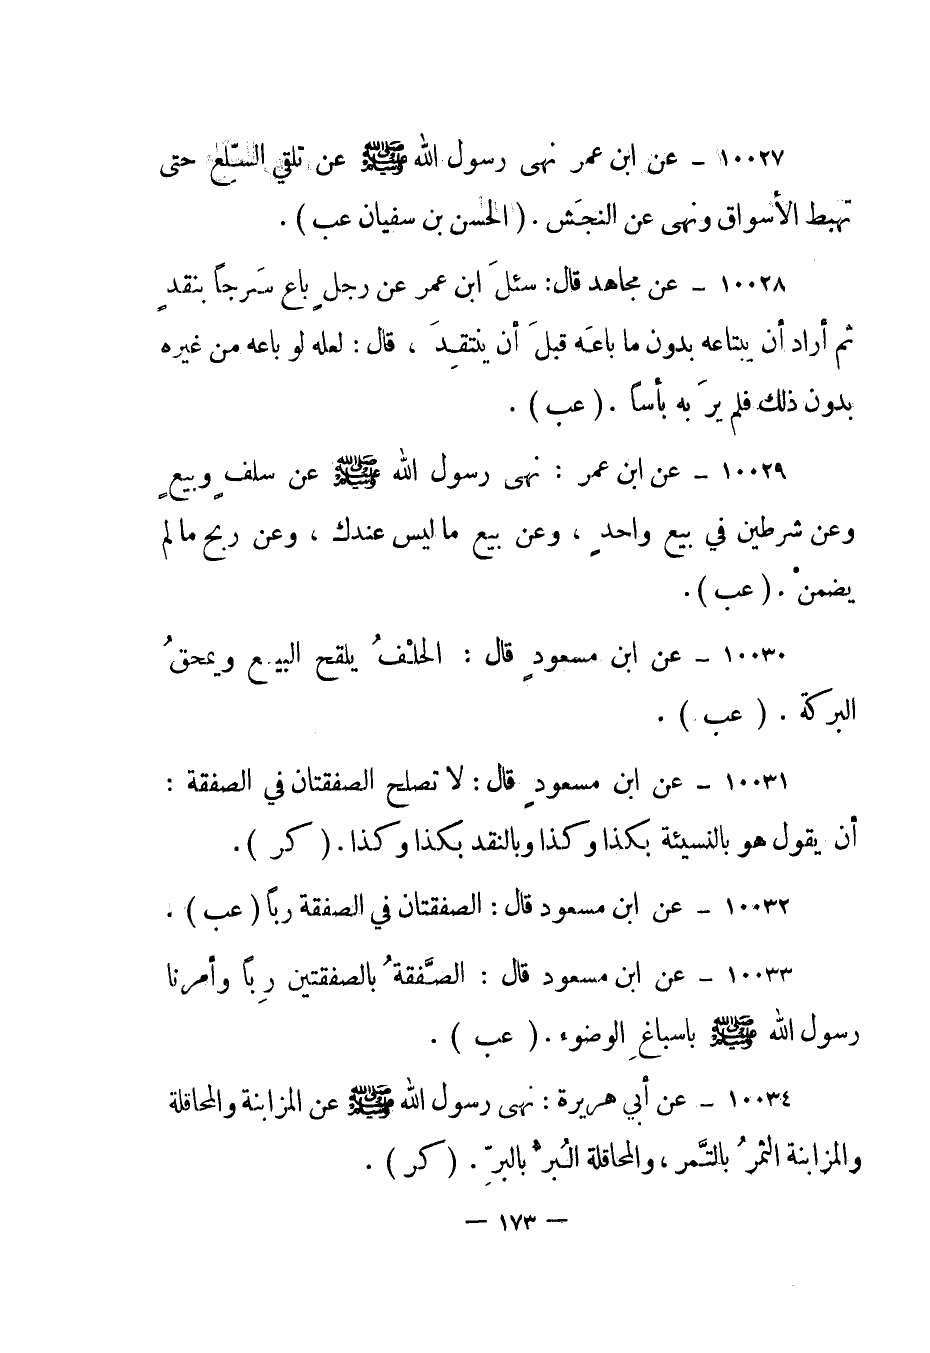 ١٠٠٢٧ ـ عن ابن عمر نهى رسول الله ﷺ عن تلقي السّلع حتى
تهبط الأسواق ونهى عن النجَش . ( الحسن بن سفيان عب ) .
١٠٠٢٨ ـ عن مجاهد قال : سئلَ ابن عمر عن رجلٍ باع سَرجاً بنقدٍ
ثم أراد أن يبتاعه بدون ما باعَه قبلَ أن ينتقِدَ ، قال : لعله لو باعه من غيره
بدون ذلك فلم يرَ به بأساً . ( عب ) .
١٠٠٢٩ ـ عن ابن عمر : نهى رسول الله ﷺ عن سلفٍ وبيعٍ
وعن شرطين في بيع واحدٍ ، وعن بيع ما ليس عندك ، وعن ربح ما لم
يضمنْ . ( عب ) .
١٠٠٣٠ ـ عن ابن مسعودٍ قال : الحلْفُ يلقح البيع ويمحقُ
البركة . ( عب ) .
١٠٠٣١ ـ عن ابن مسعودٍ قال : لا تصلح الصفقتان في الصفقة :
أن يقول هو بالنسيئة بكذا وكذا وبالنقد بكذا وكذا . ( كر ) .
١٠٠٣٢ ـ عن ابن مسعود قال : الصفقتان في الصفقة رباً ( عب ) .
١٠٠٣٣ ـ عن ابن مسعود قال : الصَّفقةُ بالصفقتين رِباً وأمرنا
رسول الله ﷺ باسباغِ الوضوء . ( عب ) .
١٠٠٣٤ ـ عن أبي هريرة : نهى رسول الله ﷺ عن المزابنة والمحاقلة
والمزابنة الثمرُ بالتَّمر ، والمحاقلة البُرُّ بالبرِّ . ( كر ) .
— ١٧٣ —